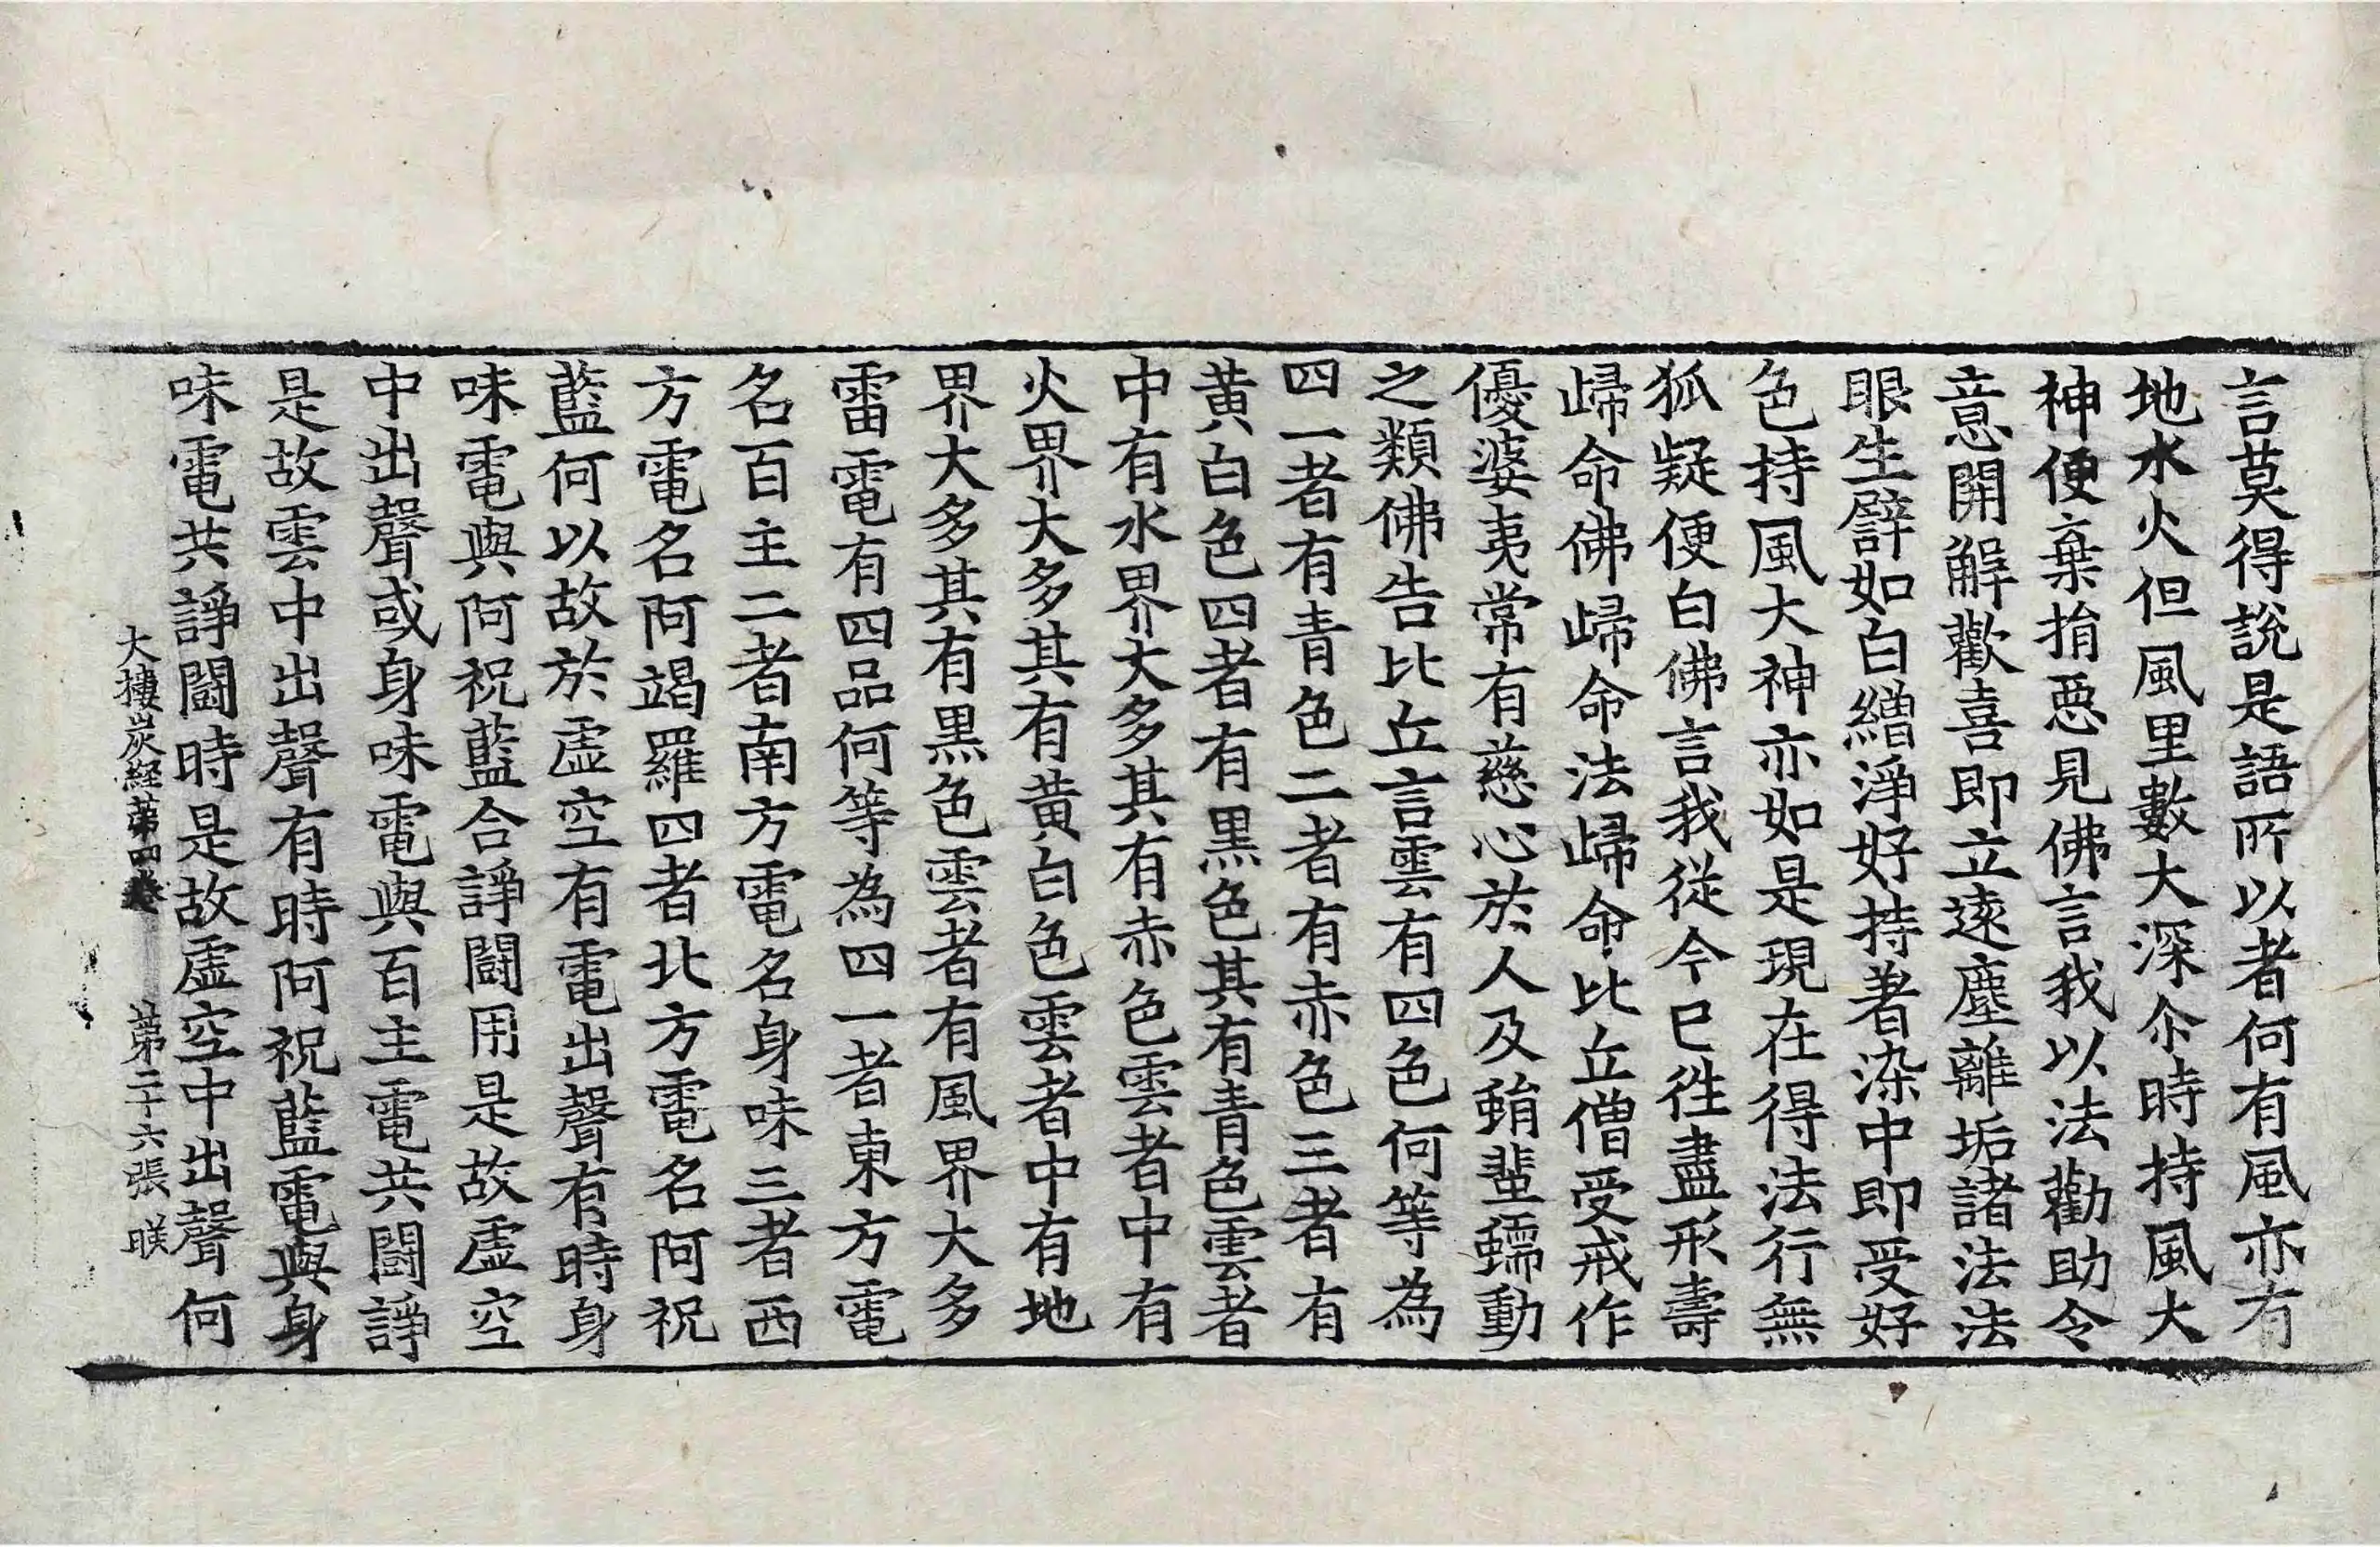 言莫得說是語所以者何有風亦有
地水火但風里數大深尒時持風大
神便棄捐惡見佛言我以法勸助令
意開解歡喜即立遠塵離垢諸法法
眼生譬如白繒淨好持著染中即受好
色持風大神亦如是現在得法行無
狐疑便白佛言我從今已徃盡形壽
歸命佛歸命法歸命比丘僧受戒作
優婆夷常有慈心於人及蜎蜚蠕動
之類佛告比丘言雲有四色何等為
四一者有青色二者有赤色三者有
黄白色四者有黑色其有青色雲者
中有水界大多其有赤色雲者中有
火界大多其有黄白色雲者中有地
界大多其有黑色雲者有風界大多
雷電有四品何等為四一者東方電
名百主二者南方電名身味三者西
方電名阿竭羅四者北方電名阿祝
藍何以故於虛空有電出聲有時身
味電與阿祝藍合諍鬪用是故虛空
中出聲或身味電與百主電共鬪諍
是故雲中出聲有時阿祝藍電與身
味電共諍鬪時是故虛空中出聲何
大樓炭經第四卷 第二十六張 睽